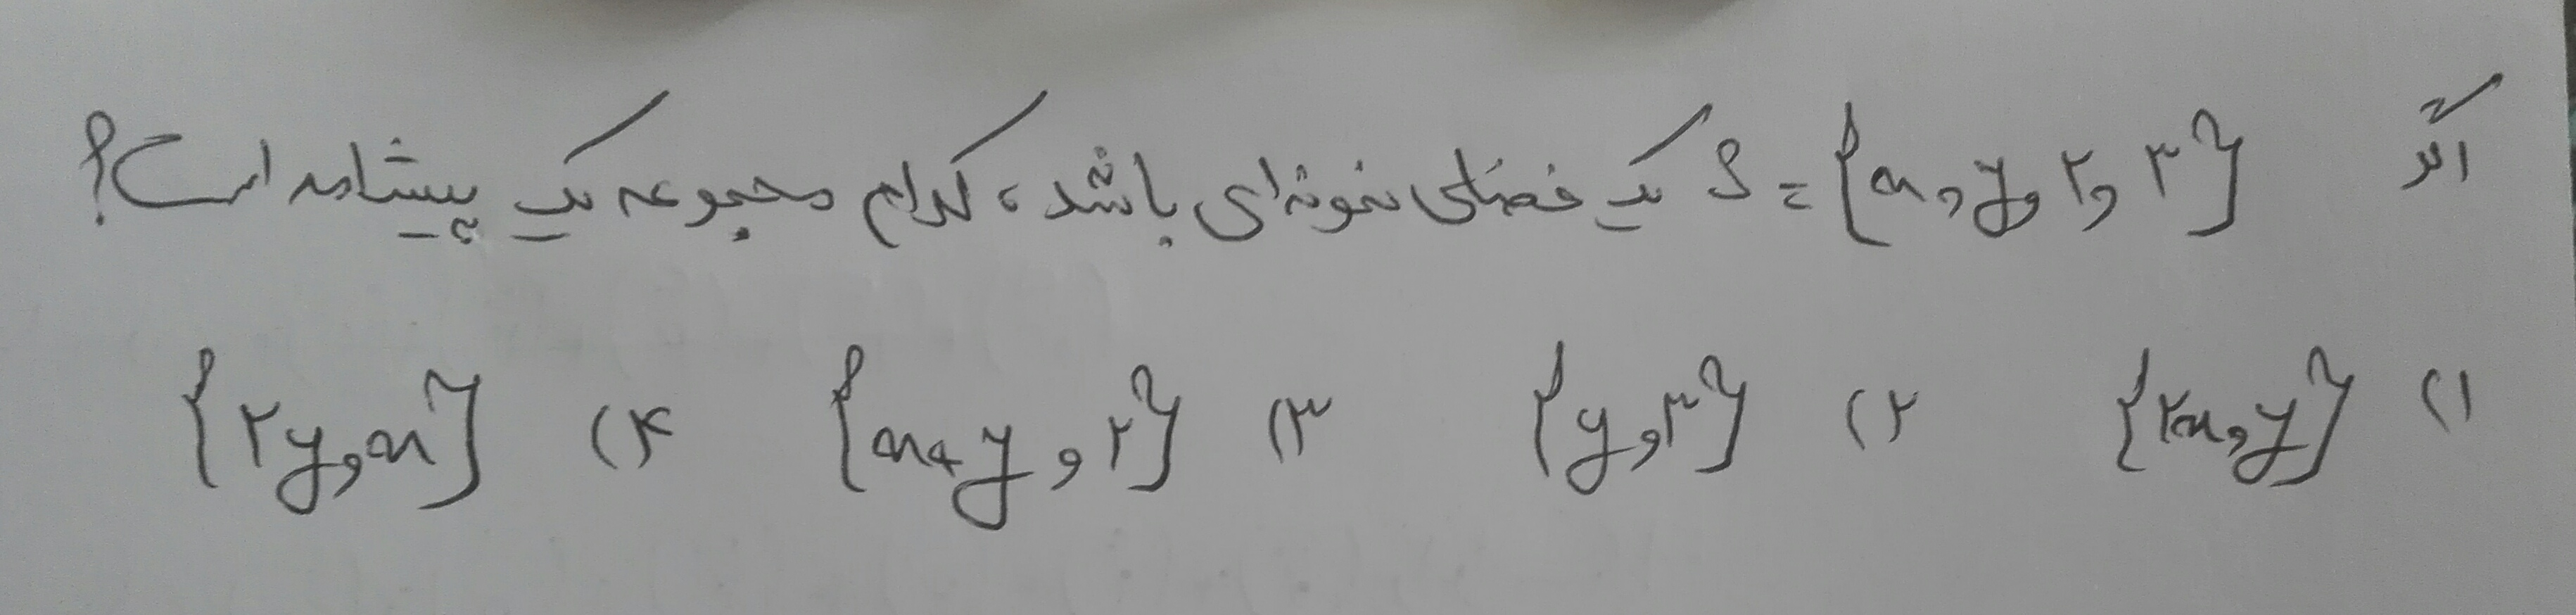 اگر S = {x, y, ۲, ۳} یک فضای نمونه‌ای باشد، کدام مجموعه یک پیشامد است؟
۱) {۲x, y} ۲) {y, ۳} ۳) {x+y, ۲} ۴) {۲y, x}